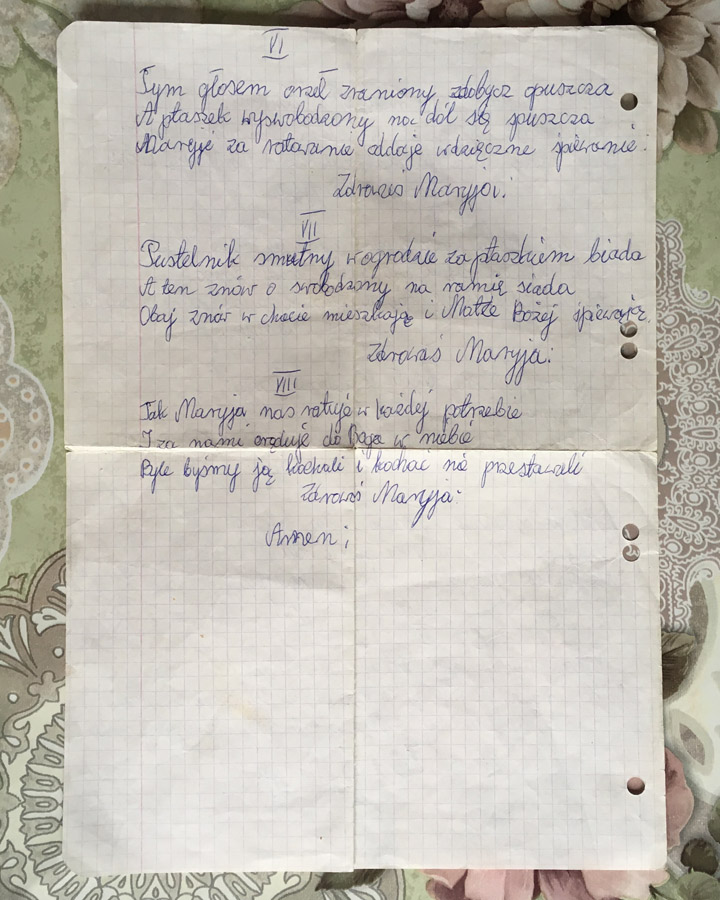 VI
Tym głosem orzeł zraniony zdobycz opuszcza
A ptaszek wyswobodzony na dół się spuszcza
Maryję za ratowanie oddaje wdzięczne śpiewanie.
Zdrowaś Maryja.
VII
Pustelnik smutny w ogrodzie za ptaszkiem biada
A ten znów o swobodzony na ramię siada
Obaj znów w chacie mieszkają i Matce Bożej śpiewają.
Zdrowaś Maryja.
VIII
Tak Maryja nas ratuje w każdej potrzebie
I za nami oręduje do Boga w niebie
Byle byśmy ją kochali i kochać nie przestawali
Zdrowaś Maryja.
Amen;